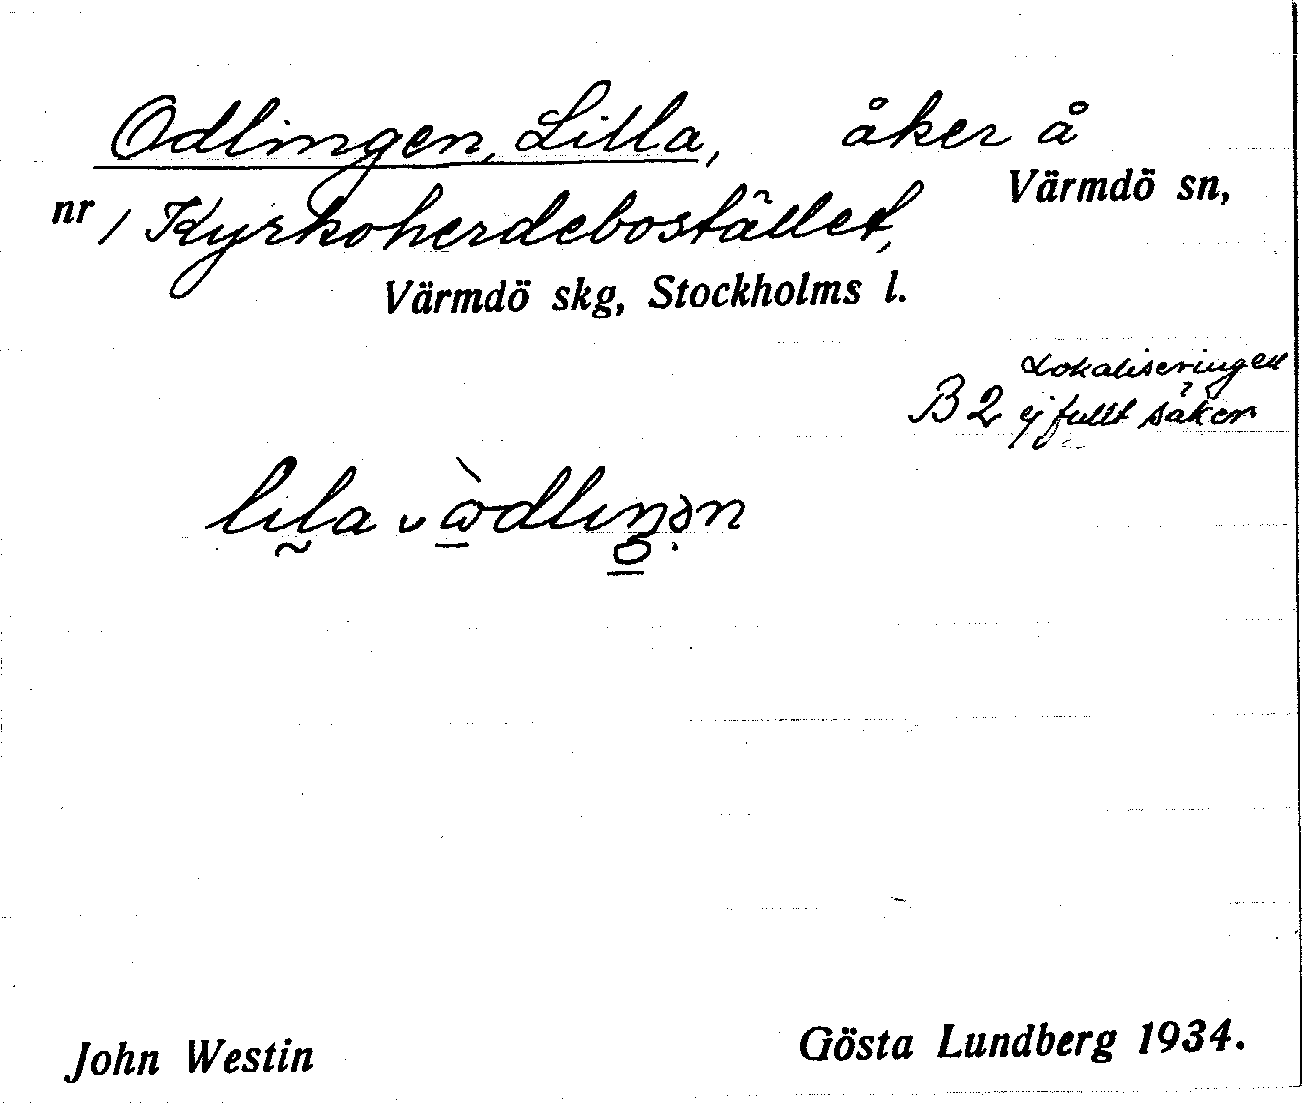 Odlingen, Lilla, åker å
Värmdö sn,
nr 1 Kyrkoherdebostället,
Värmdö skg, Stockholms l.
Lokaliseringen
B 2 ej fullt säker
John Westin
Gösta Lundberg 1934.